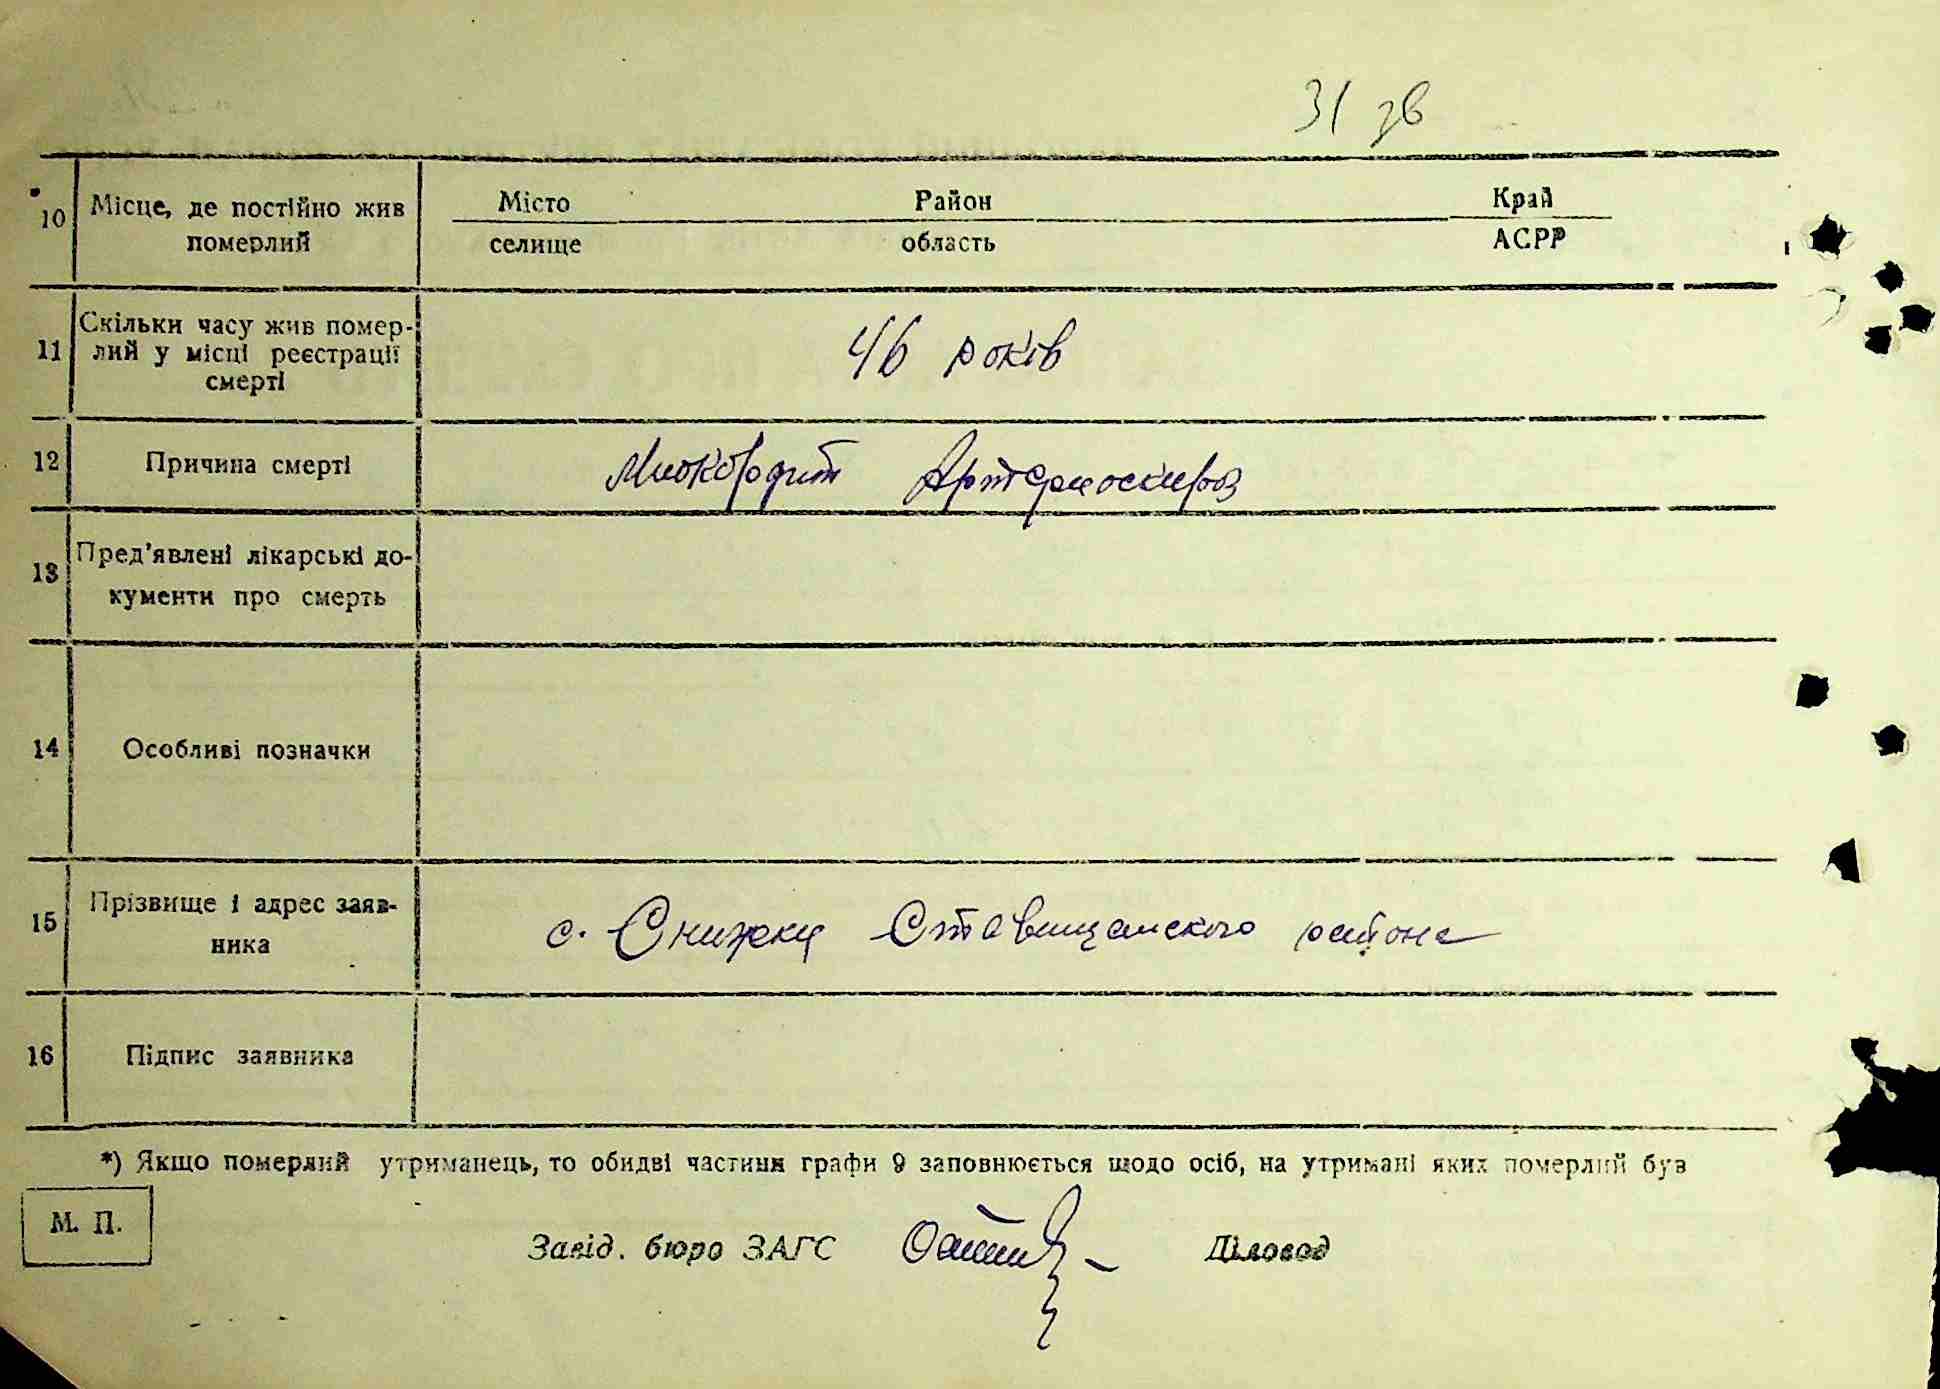 31 зв
10 Місце, де постійно жив померлий Місто селище Район область Край АСРР
11 Скільки часу жив помер-
лий у місці реєстрації
смерті
46 років
12 Причина смерті Миокордит Артериосклероз
13 Пред'явлені лікарські до-
кументи про смерть
14 Особливі позначки
15 Прізвище і адрес заяв-
ника
с. Снижки Ставищанского района
16 Підпис заявника
*) Якщо померлий утриманець, то обидві частини графи 9 заповнюється щодо осіб, на утримані яких померлий був
М. П.
Завід. бюро ЗАГС Діловод